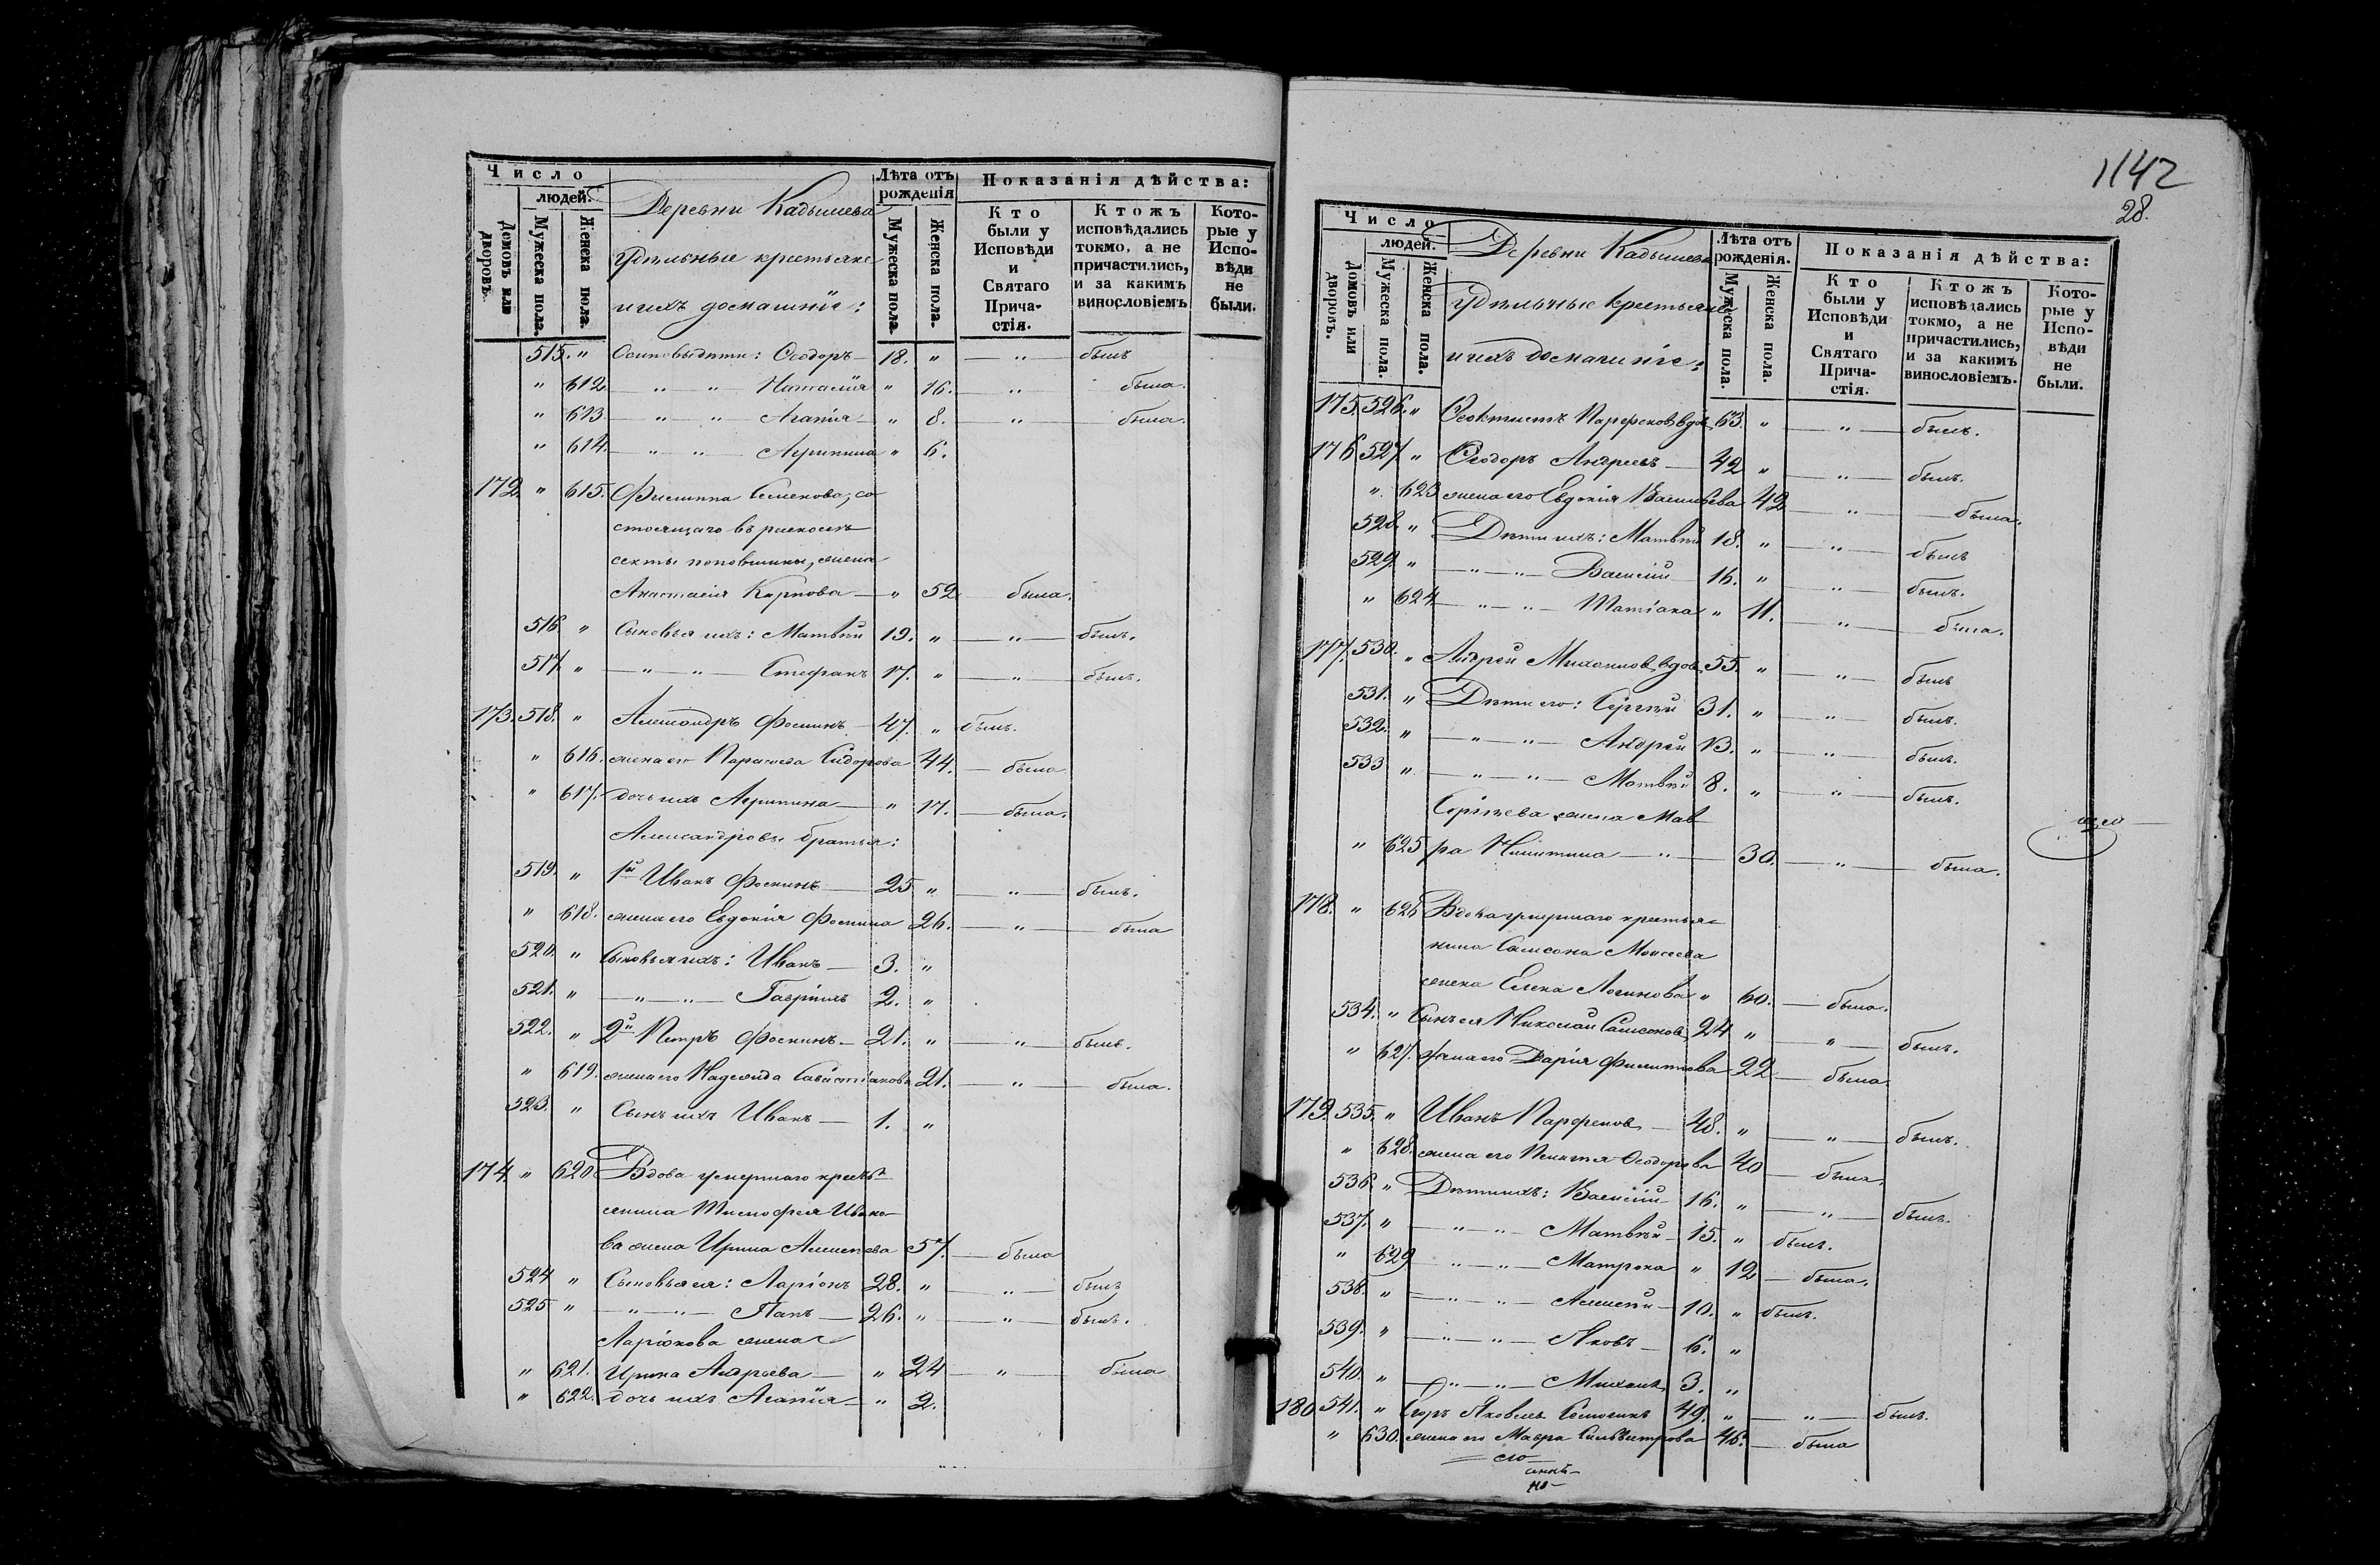 Число
людей.
Домовъ или дворовъ.
Мужеска пола.
Женска пола.
Деревни Кадышева
Удѣльные крестьяне
и ихъ домашніе:
Лѣта отъ рожденія
Мужеска пола.
Женска пола.
Показанія дѣйства:
Кто были у Исповѣди и Святаго Причастія.
Ктожъ исповѣдались токмо, а не причастились, и за какимъ винословіемъ
Которые у Исповѣди не были.
515. " Осиповы дѣти: Ѳеодоръ — 18. " — " — былъ
" 612. — " — " — Наталія " 16. — " — была.
" 613 — " — " — Агапія — " 8. — " — была.
" 614. — " — " — Агрипина " 6.
172. " 615. Филиппа Семенова, со-
стоящаго въ расколѣ
секты поповщины, жена
Анастасія Карпова — " 52 — была.
516 " Сыновья ихъ: Матвѣй 19. " — " — былъ.
517. " — " — " — Стефанъ 17. " — " — былъ.
173. 518. " Александръ Фоминъ — 47. " былъ.
" 616. жена его Параскева Сидорова 44. — была
" 617. дочь ихъ Агрипина — " 17. — была.
Александровы братья:
519. " 1й Иванъ Фоминъ — 25 " — " — былъ.
" 618. жена его Евдокія Фомина 26. — " — была
520. " Сыновья ихъ: Иванъ — 3. "
521. " — " — " — Гавріилъ 2. "
522. " 2й Петръ Фоминъ — 21. " — " — былъ.
" 619. жена его Надежда Савастіанова 21. — " — была.
523. " Сынъ ихъ Иванъ — 1. "
174. " 620 Вдова умершаго кресть-
янина Тимофея Ивано-
ва жена Ирина Алексѣева 57. — была
524 " Сыновья ея: Ларіонъ 28. " — " — былъ
525 " — " — " — 26. " — " — былъ.
Ларіонова жена
" 621. Ирина Андреева — " 24 — " — была
" 622. дочь ихъ Агапія — " 2.
1142
28.
Число
людей.
Домовъ или дворовъ.
Мужеска пола.
Женска пола.
Деревни Кадышева
Удѣльные крестьяне
и ихъ домашніе:
Лѣта отъ рожденія.
Мужеска пола.
Женска пола.
Показанія дѣйства:
Кто были у Исповѣди и Святаго Причастія.
Ктожъ исповѣдались токмо, а не причастились, и за какимъ винословіемъ.
Которые у Исповѣди не были.
175. 526. " Ѳеоктистъ Парфеновъ вдов. 63. " — " — былъ.
176 527. " Ѳеодоръ Андреевъ — 42 " — " — былъ.
" 623 жена его Евдокія Васильева 42 — " — была.
528. " Дѣти ихъ: Матвѣй 18. " — " — былъ
529. " — " — " — Василій 16. " — " — былъ.
" 624 — " — " — Татіана " 11. — " — была.
177. 530. " Андрей Михаиловъ вдов. 55. " — " — былъ
531. " Дѣти его: Сергѣй 31. " — " — былъ.
532. " — " — " — Андрей 13. " — " — былъ.
533 " — " — " — Матвѣй 8. " — " — былъ.
Сергѣева жена Мав
" 625 ра Никитина — " — 30. — " — была.
178. " 626 Вдова умершаго крестья-
нина Самсона Моисеева
жена Елена Логинова " 60. — была.
534. " Сынъ ея Николай Самсонов. 24 " — " — былъ.
" 627. жена его Дарія Филиппова 22 — была.
179. 535. " Иванъ Парфенов. — 48. " — " — былъ.
" 628. жена его Ѳеодорова 40 — была.
536. " Дѣти ихъ: Василій — 16. " — " — былъ.
537. " — " — " — Матвѣй — 15. " былъ.
" 629 — " — " — Матрона " 12 — была.
538. " — " — " — Алексѣй — 10. " былъ.
539. " — " — " — Яковъ — 6. "
540. " — " — " — Михаилъ 3. "
180 541. " Егоръ Яковлевъ 49. " — " — былъ.
" 630. жена его Мавра Сильвестрова 46. — была